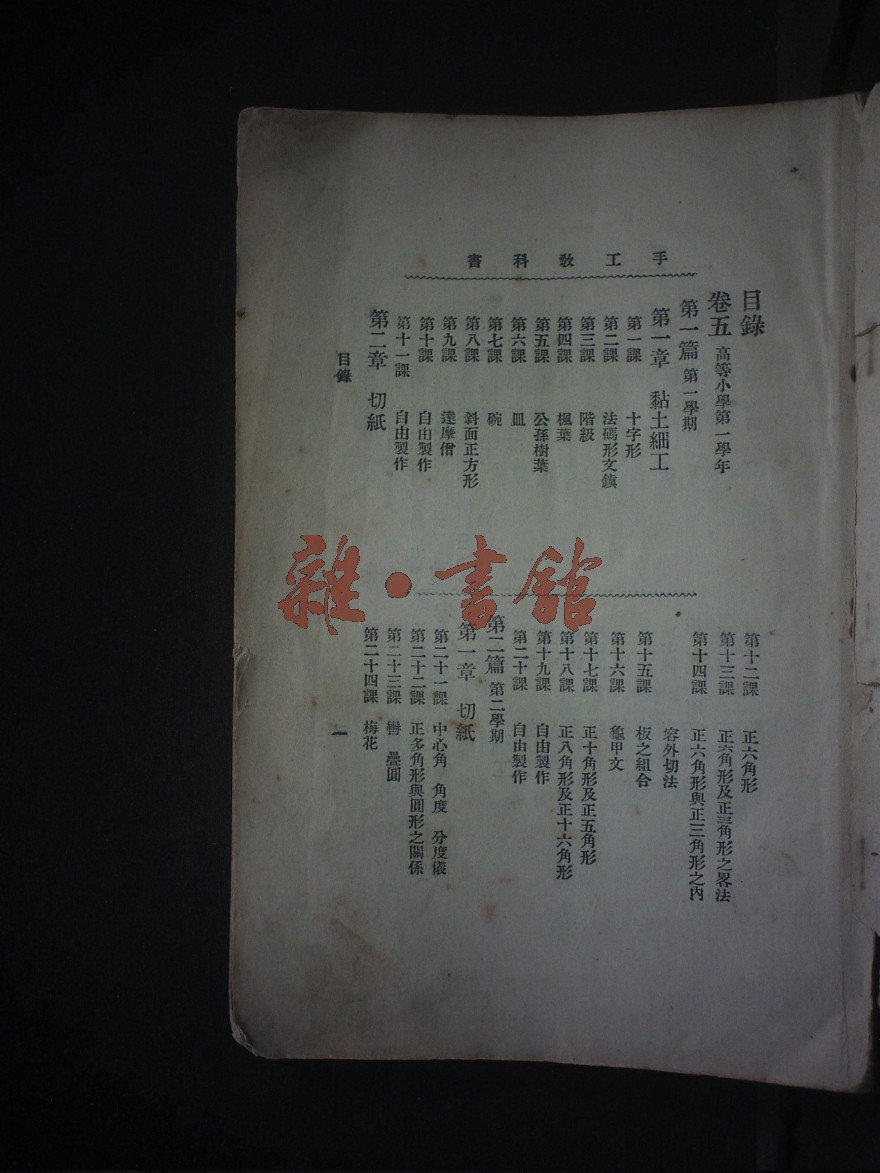 手工教科書
目錄
卷五 高等小學第一學年
第一篇 第一學期
第一章 黏土細工
第一課 十字形
第二課 法碼形文鎮
第三課 階級
第四課 楓葉
第五課 公孫樹葉
第六課 皿
第七課 碗
第八課 斜面正方形
第九課 達摩僧
第十課 自由製作
第十一課 自由製作
第二章 切紙
第十二課 正六角形
第十三課 正六角形及正三角形之畧法
第十四課 正六角形與正三角形之內
容外切法
第十五課 板之組合
第十六課 龜甲文
第十七課 正十角形及正五角形
第十八課 正八角形及正十六角形
第十九課 自由製作
第二十課 自由製作
第二篇 第二學期
第一章 切紙
第二十一課 中心角 角度 分度儀
第二十二課 正多角形與圓形之關係
第二十三課 轡 疊圓
第二十四課 梅花
目錄
一
雜·書館